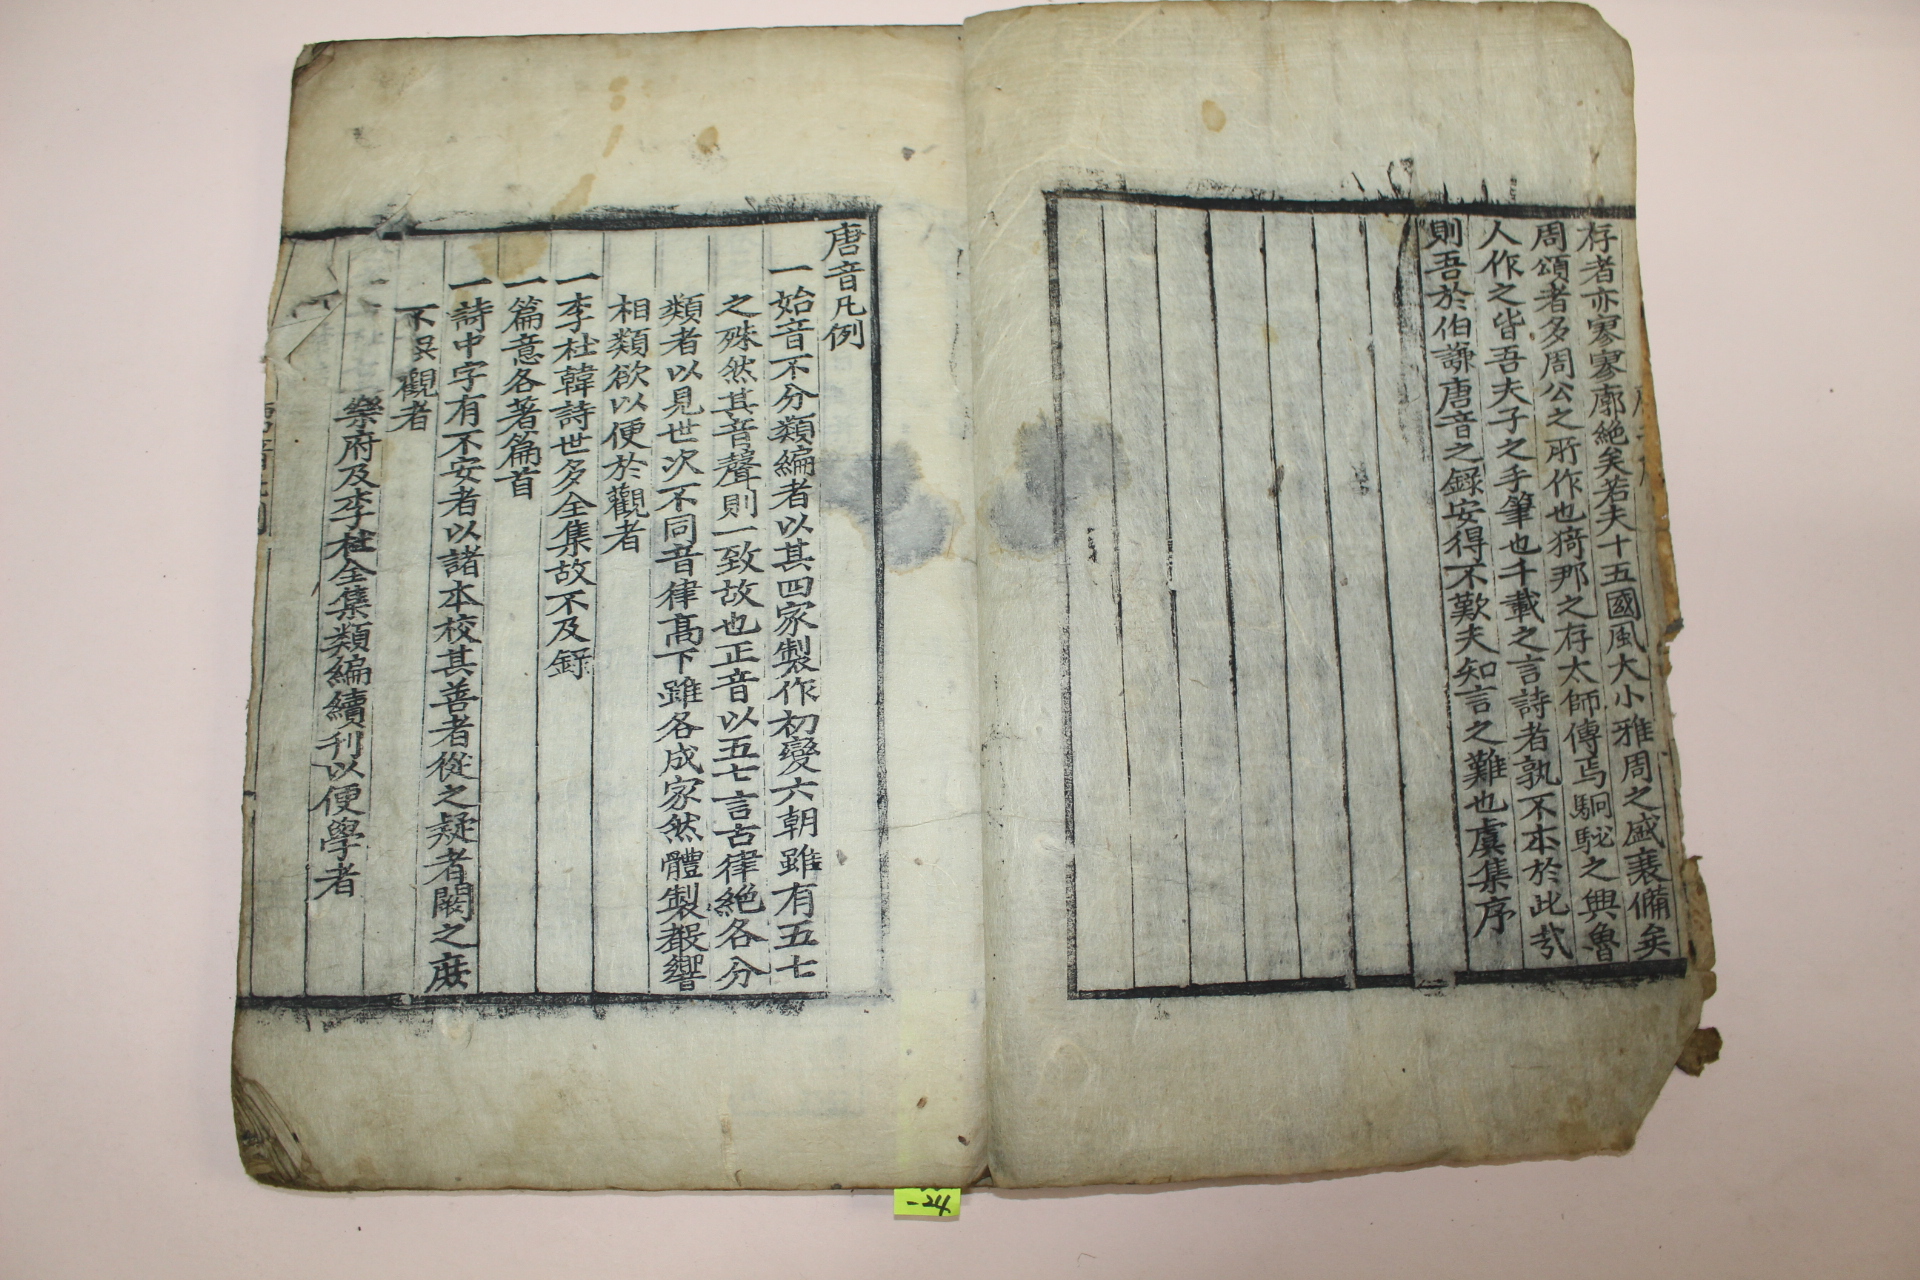 存者亦寥寥廓絶矣若夫十五國風大小雅周之盛衰備矣
周頌者多周公之所作也猗那之存太師傳焉駉駜之興魯
人作之皆吾夫子之手筆也千載之言詩者孰不本於此㢤
則吾於伯謙唐音之録安得不歎夫知言之難也虞集序
唐音凡例
一始音不分類編者以其四家製作初變六朝雖有五七
之殊然其音聲則一致故也正音以五七言古律絶各分
類者以見世次不同音律髙下雖各成家然體製聲響
相類欲以便於觀者
一李杜韓詩世多全集故不及録
一篇意各著篇首
一詩中字有不安者以諸本校其善者從之疑者闕之庶
不誤觀者
樂府及李杜全集類編續刋以便學者
-24